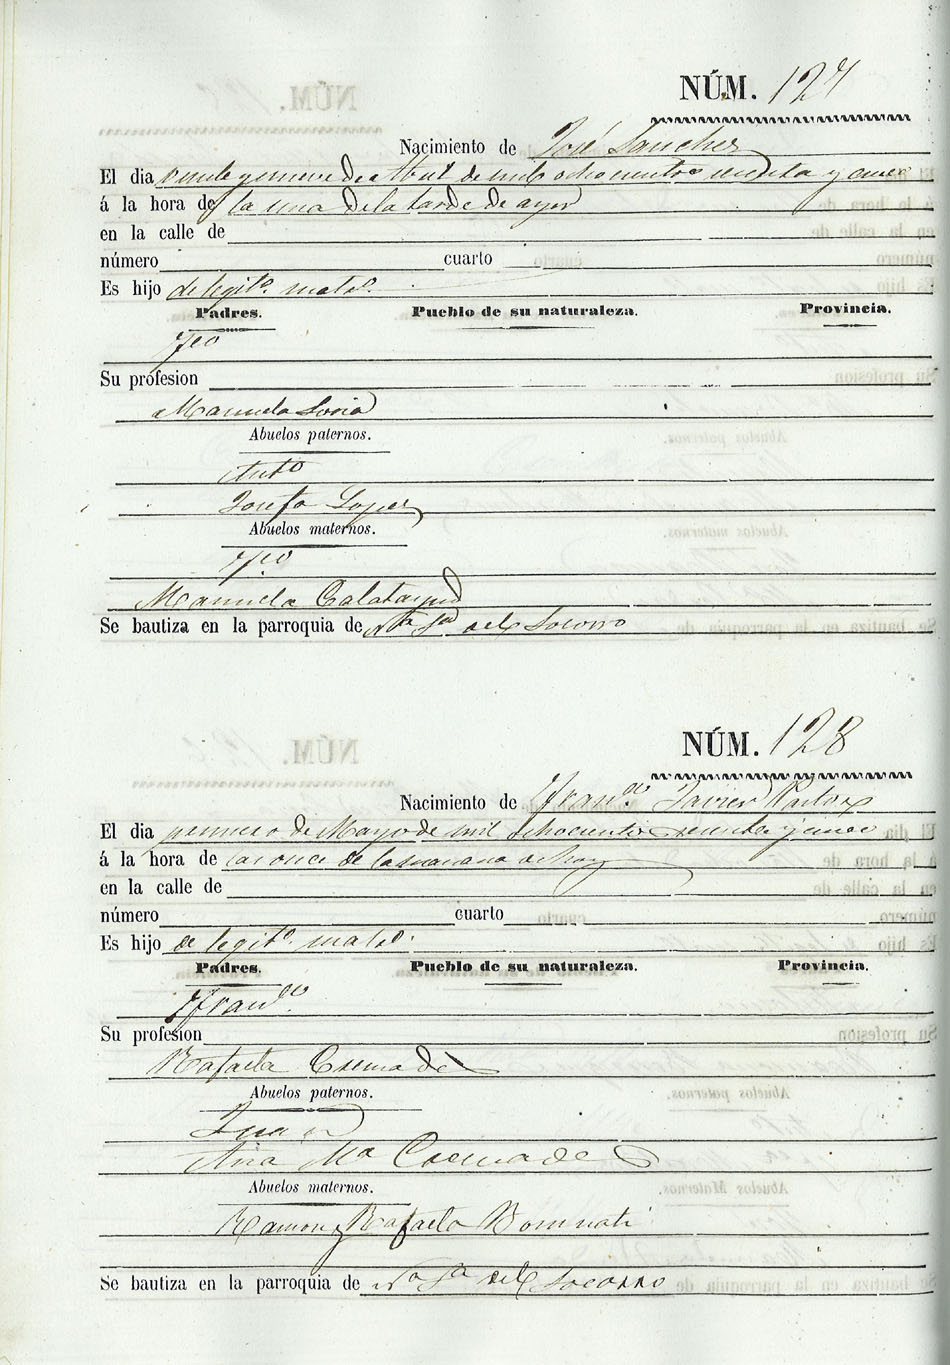 NÚM. 127
Nacimiento de José Sanchez
El dia veinte y nueve de Abril de mil ochocientos sesenta y cinco
á la hora de la una de la tarde de ayer
en la calle de
número cuarto
Es hijo de legit.º mat.º
Padres. Pueblo de su naturaleza. Provincia.
Fco
Su profesion
Manuela Soria
Abuelos paternos.
Ant.º
Josefa Lopez
Abuelos maternos.
Fco
Manuela Calatayud
Se bautiza en la parroquia de Nta Sra del Socorro
NÚM. 128
Nacimiento de Fran.co Javier Pastor
El dia primero de Mayo de mil ochocientos sesenta y cinco
á la hora de las once de la mañana de hoy
en la calle de
número cuarto
Es hijo de legit.º mat.º
Padres. Pueblo de su naturaleza. Provincia.
Fran.co
Su profesion
Rafaela Cremades
Abuelos paternos.
Juan
Ana Mª Cremades
Abuelos maternos.
Ramon y Rafaela Bonmati
Se bautiza en la parroquia de Nª Sª del Socorro